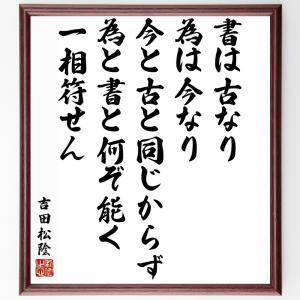 書は古なり
為は今なり
今と古と同じからず
為と書と何ぞ能く
一相符せん
吉田松陰